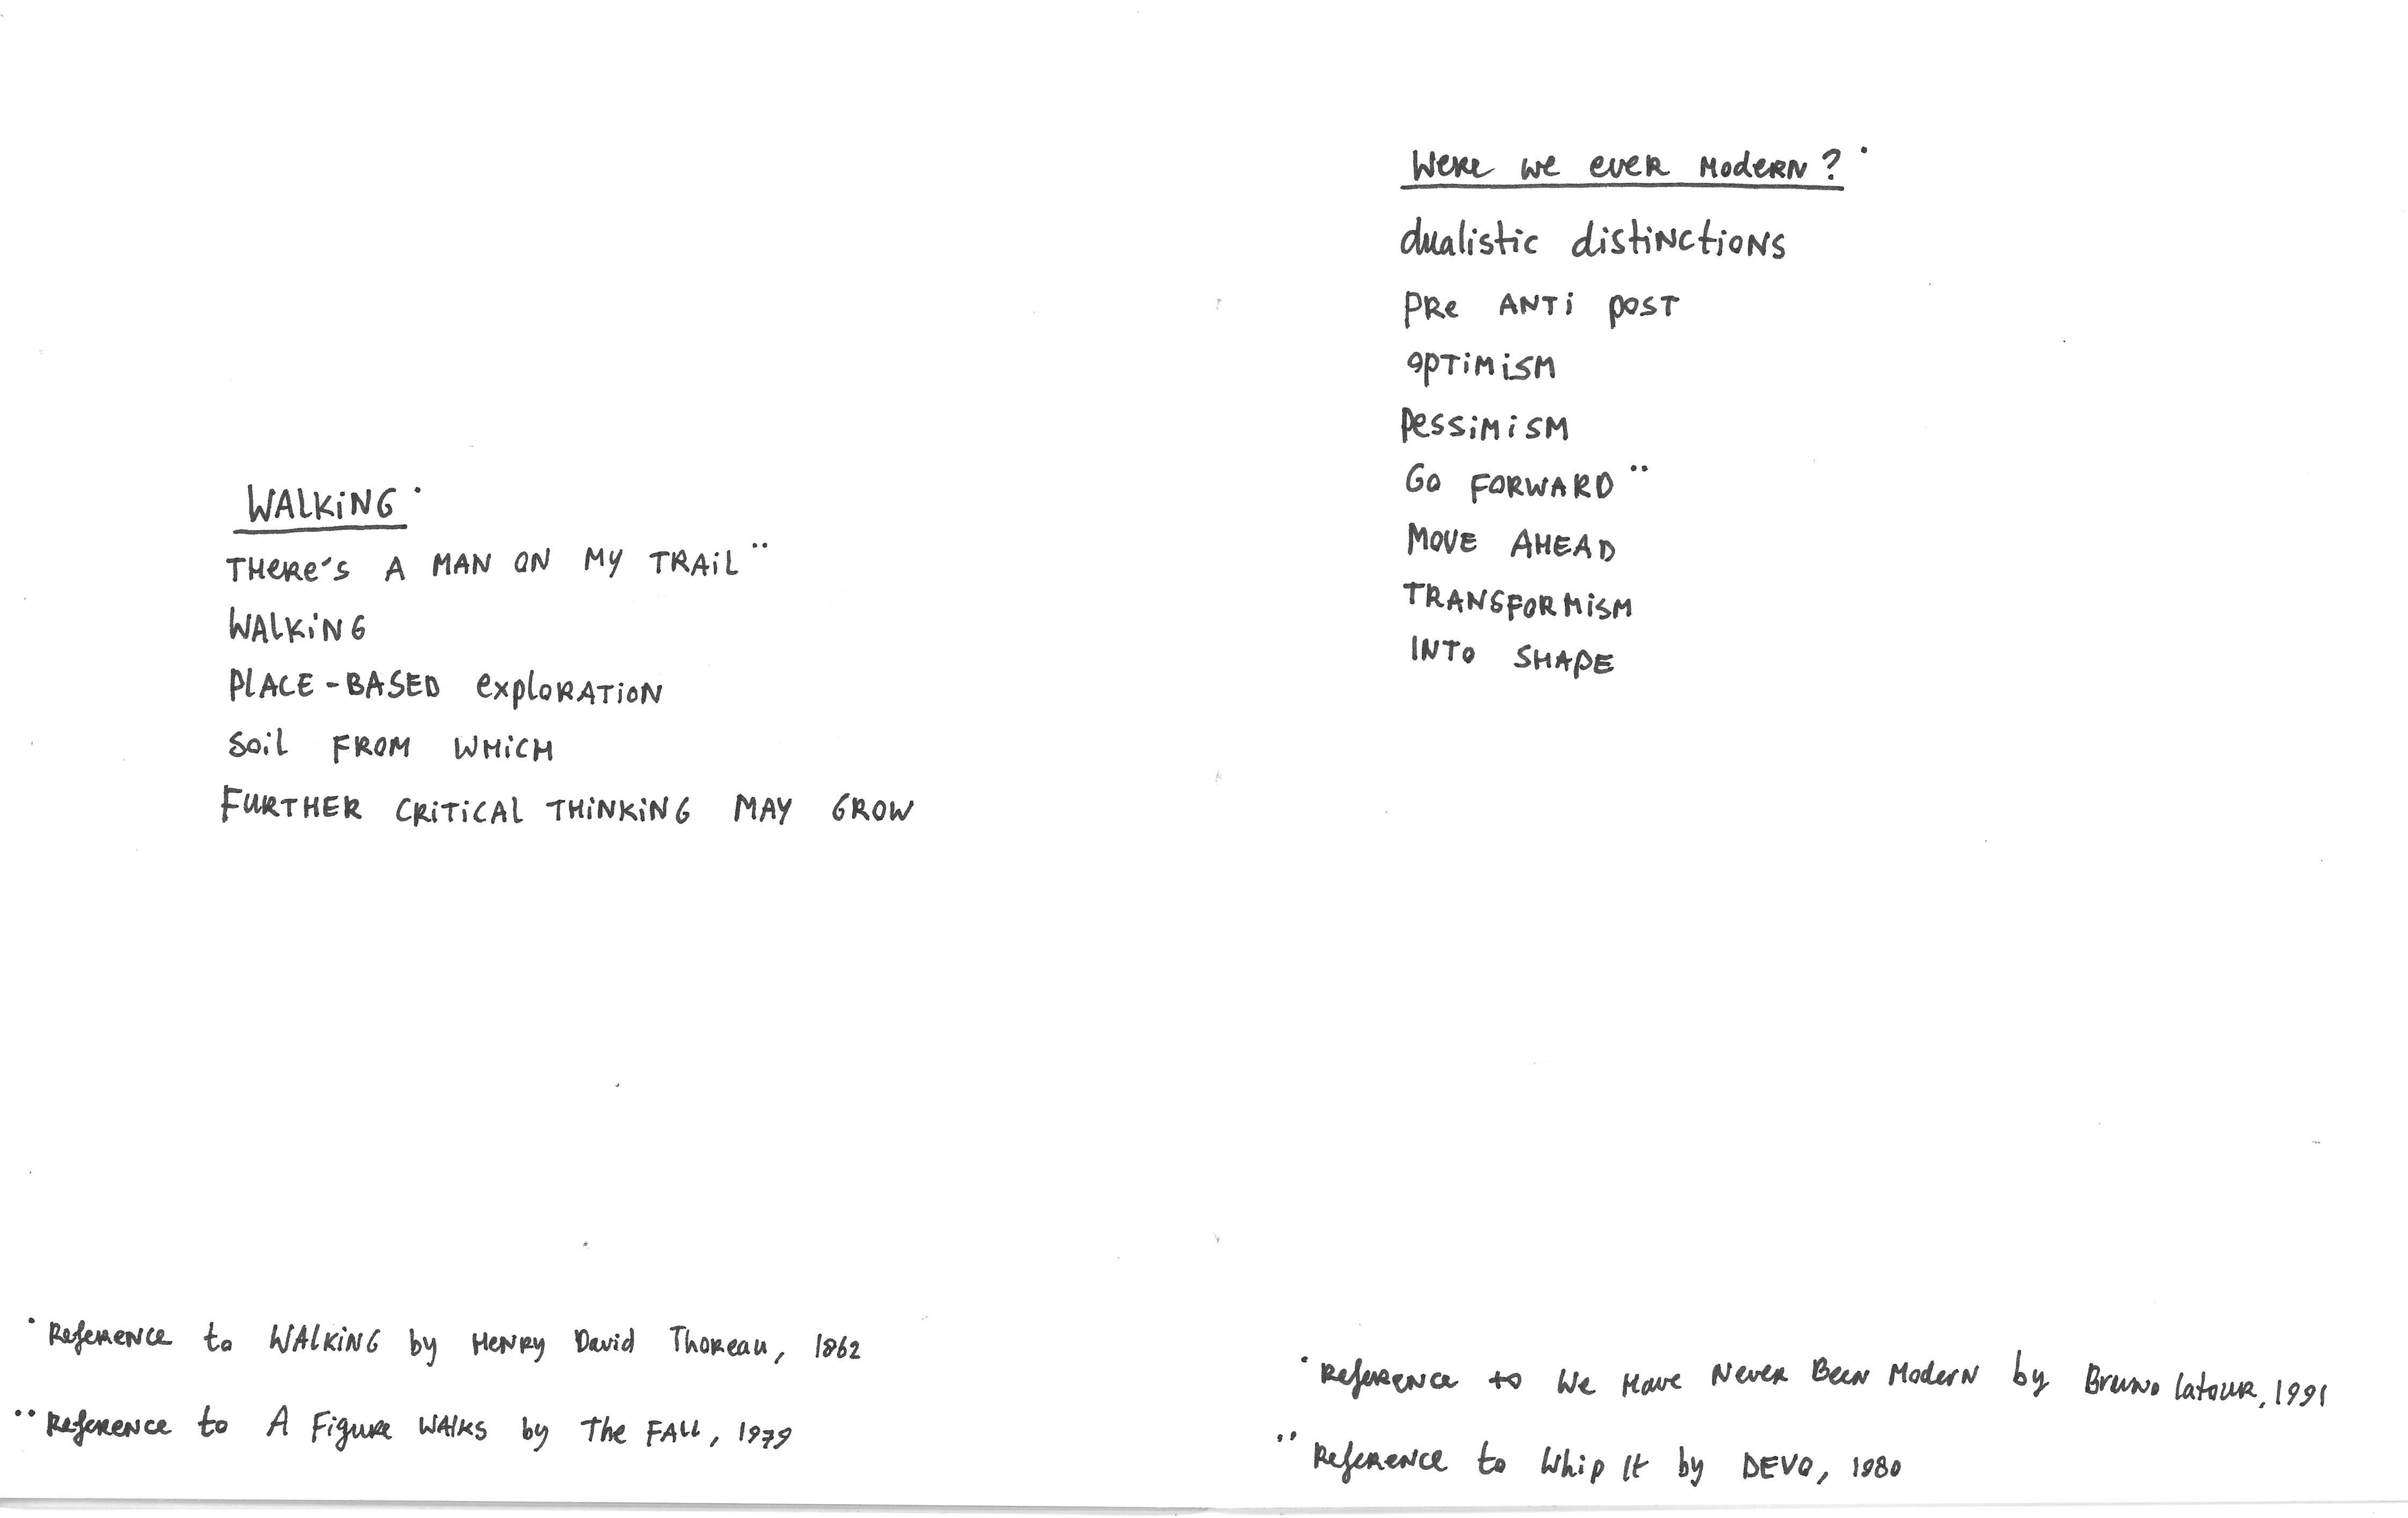 WALKiNG ·
THeRe's A MAN ON MY TRAiL ··
WALKiNG
PLACE-BASED exploRATiON
Soil FROM WHiCH
FURTHER CRiTiCAL THiNKiNG MAY GROW
· Reference to WALKiNG by HeNRy David Thoreau, 1862
·· Reference to A Figure WAlKs by The FALL, 1979
Were we ever Modern? ·
dualistic distiNctioNs
PRe ANTi POST
OPTiMiSM
PessiMiSM
GO FORWARD ··
MOVE AHEAD
TRANSFORMiSM
INTO SHAPE
· Reference to We Have Never Been Modern by Bruno Latour, 1991
·· Reference to Whip It by DEVO, 1980